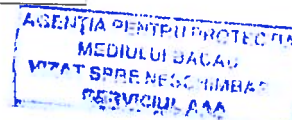 AGENȚIA PENTRU PROTECȚIA
MEDIULUI BACĂU
VIZAT SPRE NESCHIMBARE
SERVICIUL AAA